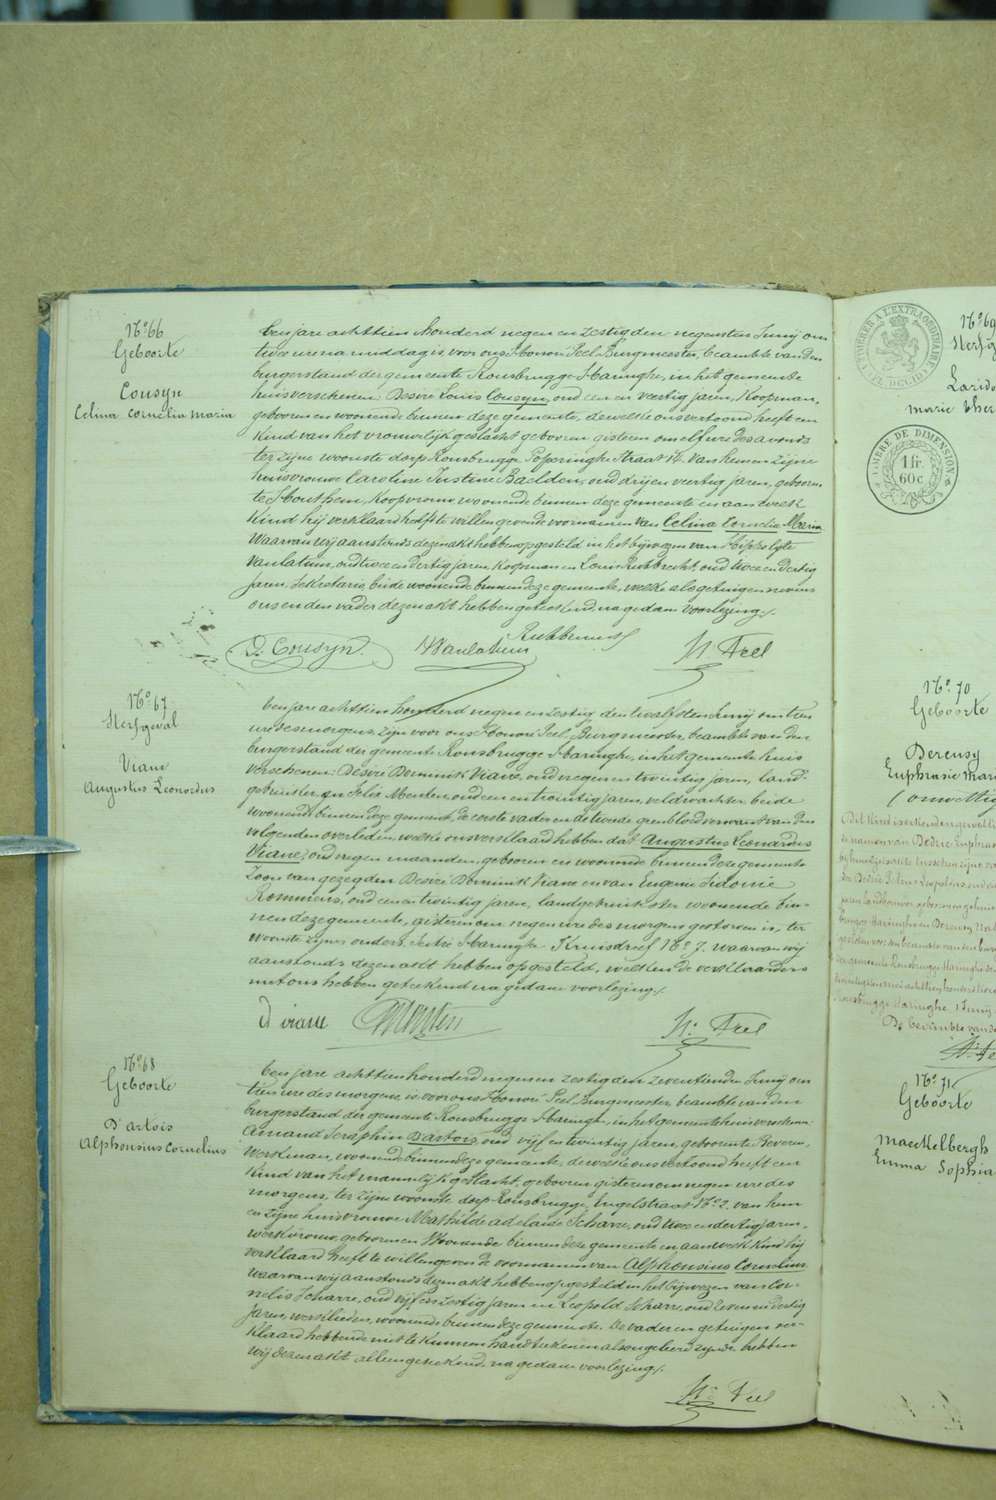 N° 66
Geboorte
Cousyn
Celina Cornelia Maria
Ten jare achttien honderd negen en zestig den negensten Junij om
twee uren na middag is, voor ons Honoré Feel Burgmeester, beambte van den
burgerstand der gemeente Rousbrugge-Haringhe, in het gemeente
huis verschenen: Desiré Louis Cousyn, oud een en veertig jaren, Koopman,
geboren en woonende binnen deze gemeente, dewelke ons vertoond heeft een
Kind van het vrouwelijk geslacht geboren gisteren om elf ure des avonds
ter zijne woonste dorp Rousbrugge Poperinghe Straat 14 van hem en zijne
huisvrouwe Caroline Justine Baelden, oud drij en veertig jaren, geboren
te Houthem, Koopvrouw, woonende binnen deze gemeente en aan welk
Kind hij verklaard heeft te willen geven de voornamen van Celina Cornelia Maria
Waarvan wij aanstonds dezen akt hebben opgesteld in het bijwezen van Hippolyte
Vanlatum, oud twee en dertig jaren, Koopman en Louis Rubbrecht, oud twee en dertig
jaren, sekretaris, beide woonende binnen deze gemeente, welke als getuigen nevens
ons en den vader dezen akt hebben geteekend, na gedane voorlezing./.
D. Cousyn HVanlatum Rubbrecht H. Feel
N° 67
Sterfgeval
Viane
Augustus Leonardus
Ten jare achttien honderd negen en zestig den twaalfsten Junij om tien
ure des morgens, zijn voor ons Honoré Feel, Burgmeester, beambte van den
burgerstand der gemeente Rousbrugge-Haringhe, in het gemeente huis
verschenen: Desiré Dominik Viane, oud negen en twintig jaren, land-
gebruiker en Felix Menten, oud een en twintig jaren, veldwachter beide
woonende binnen deze gemeente, de eerste vader en de tweede geen bloedverwant van den
volgenden overleden, welke ons verklaard hebben dat Augustus Leonardus
Viane, oud negen maanden, geboren en woonende binnen deze gemeente
Zoon van gezegden Desiré Dominik Viane en van Eugenie Sidonie
Rommens, oud een en twintig jaren, landgebruikster woonende bin-
nen deze gemeente, gisteren om negen ure des morgens gestorven is, ter
woonste zijner ouders, sectie Haringhe Kruisdreef N° 7. waarvan wij
aanstonds dezen akt hebben opgesteld, welken de verklaarders
met ons hebben geteekend na gedane voorlezing./.
D viane Menten H. Feel
N° 68
Geboorte
D'artois
Alphonsius Cornelius
Ten jare achttien honderd negen en zestig den zeventienden Junij om
tien ure des morgens, is voor ons Honoré Feel Burgmeester beambte van den
burgerstand der gemeente Rousbrugge Haringhe, in het gemeentehuis verschenen:
Amand Seraphin Dartois, oud vijf en twintig jaren, geboren te Beveren,
Werkman, woonende binnen deze gemeente, dewelke ons vertoond heeft een
Kind van het mannelijk geslacht, geboren gisteren om negen ure des
morgens, ter zijne woonste dorp Rousbrugge, Ingelstraat N° 2. van hem
en zijne huisvrouwe Mathilde Adelaide Scharre, oud twee en dertig jaren,
werkvrouw, geboren en woonende binnen deze gemeente en aan welk Kind hij
verklaard heeft te willen geven de voornamen van Alphonsius Cornelius
waarvan wij aanstonds dezen akt hebben opgesteld in het bijwezen van Cor-
nelis Scharre, oud vijf en zestig jaren en Leopold Scharre, oud zeven en dertig
Jaren, werklieden, woonende binnen deze gemeente. De vader en getuigen ver-
klaard hebbende niet te kunnen handtekenen als ongeleerd zijnde hebben
wij dezen akt alleen geteekend, na gedane voorlezing./.
H. Feel
TIMBRE A L'EXTRAORDINAIRE
TIMBRE DE DIMENSION
1 fr.
60 c
N° 69
Sterfg
Marie Ther
N° 70
Geboorte
Dereusy
Euphrasie Mari
(onwettig
N° 71
Geboorte
Maeckelbergh
Emma Sophia